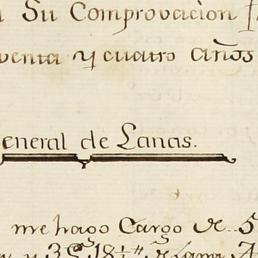 Su Comprovacion
venta y cuatro años
eneral de Lanas.
me hago Cargo de 5
y 3